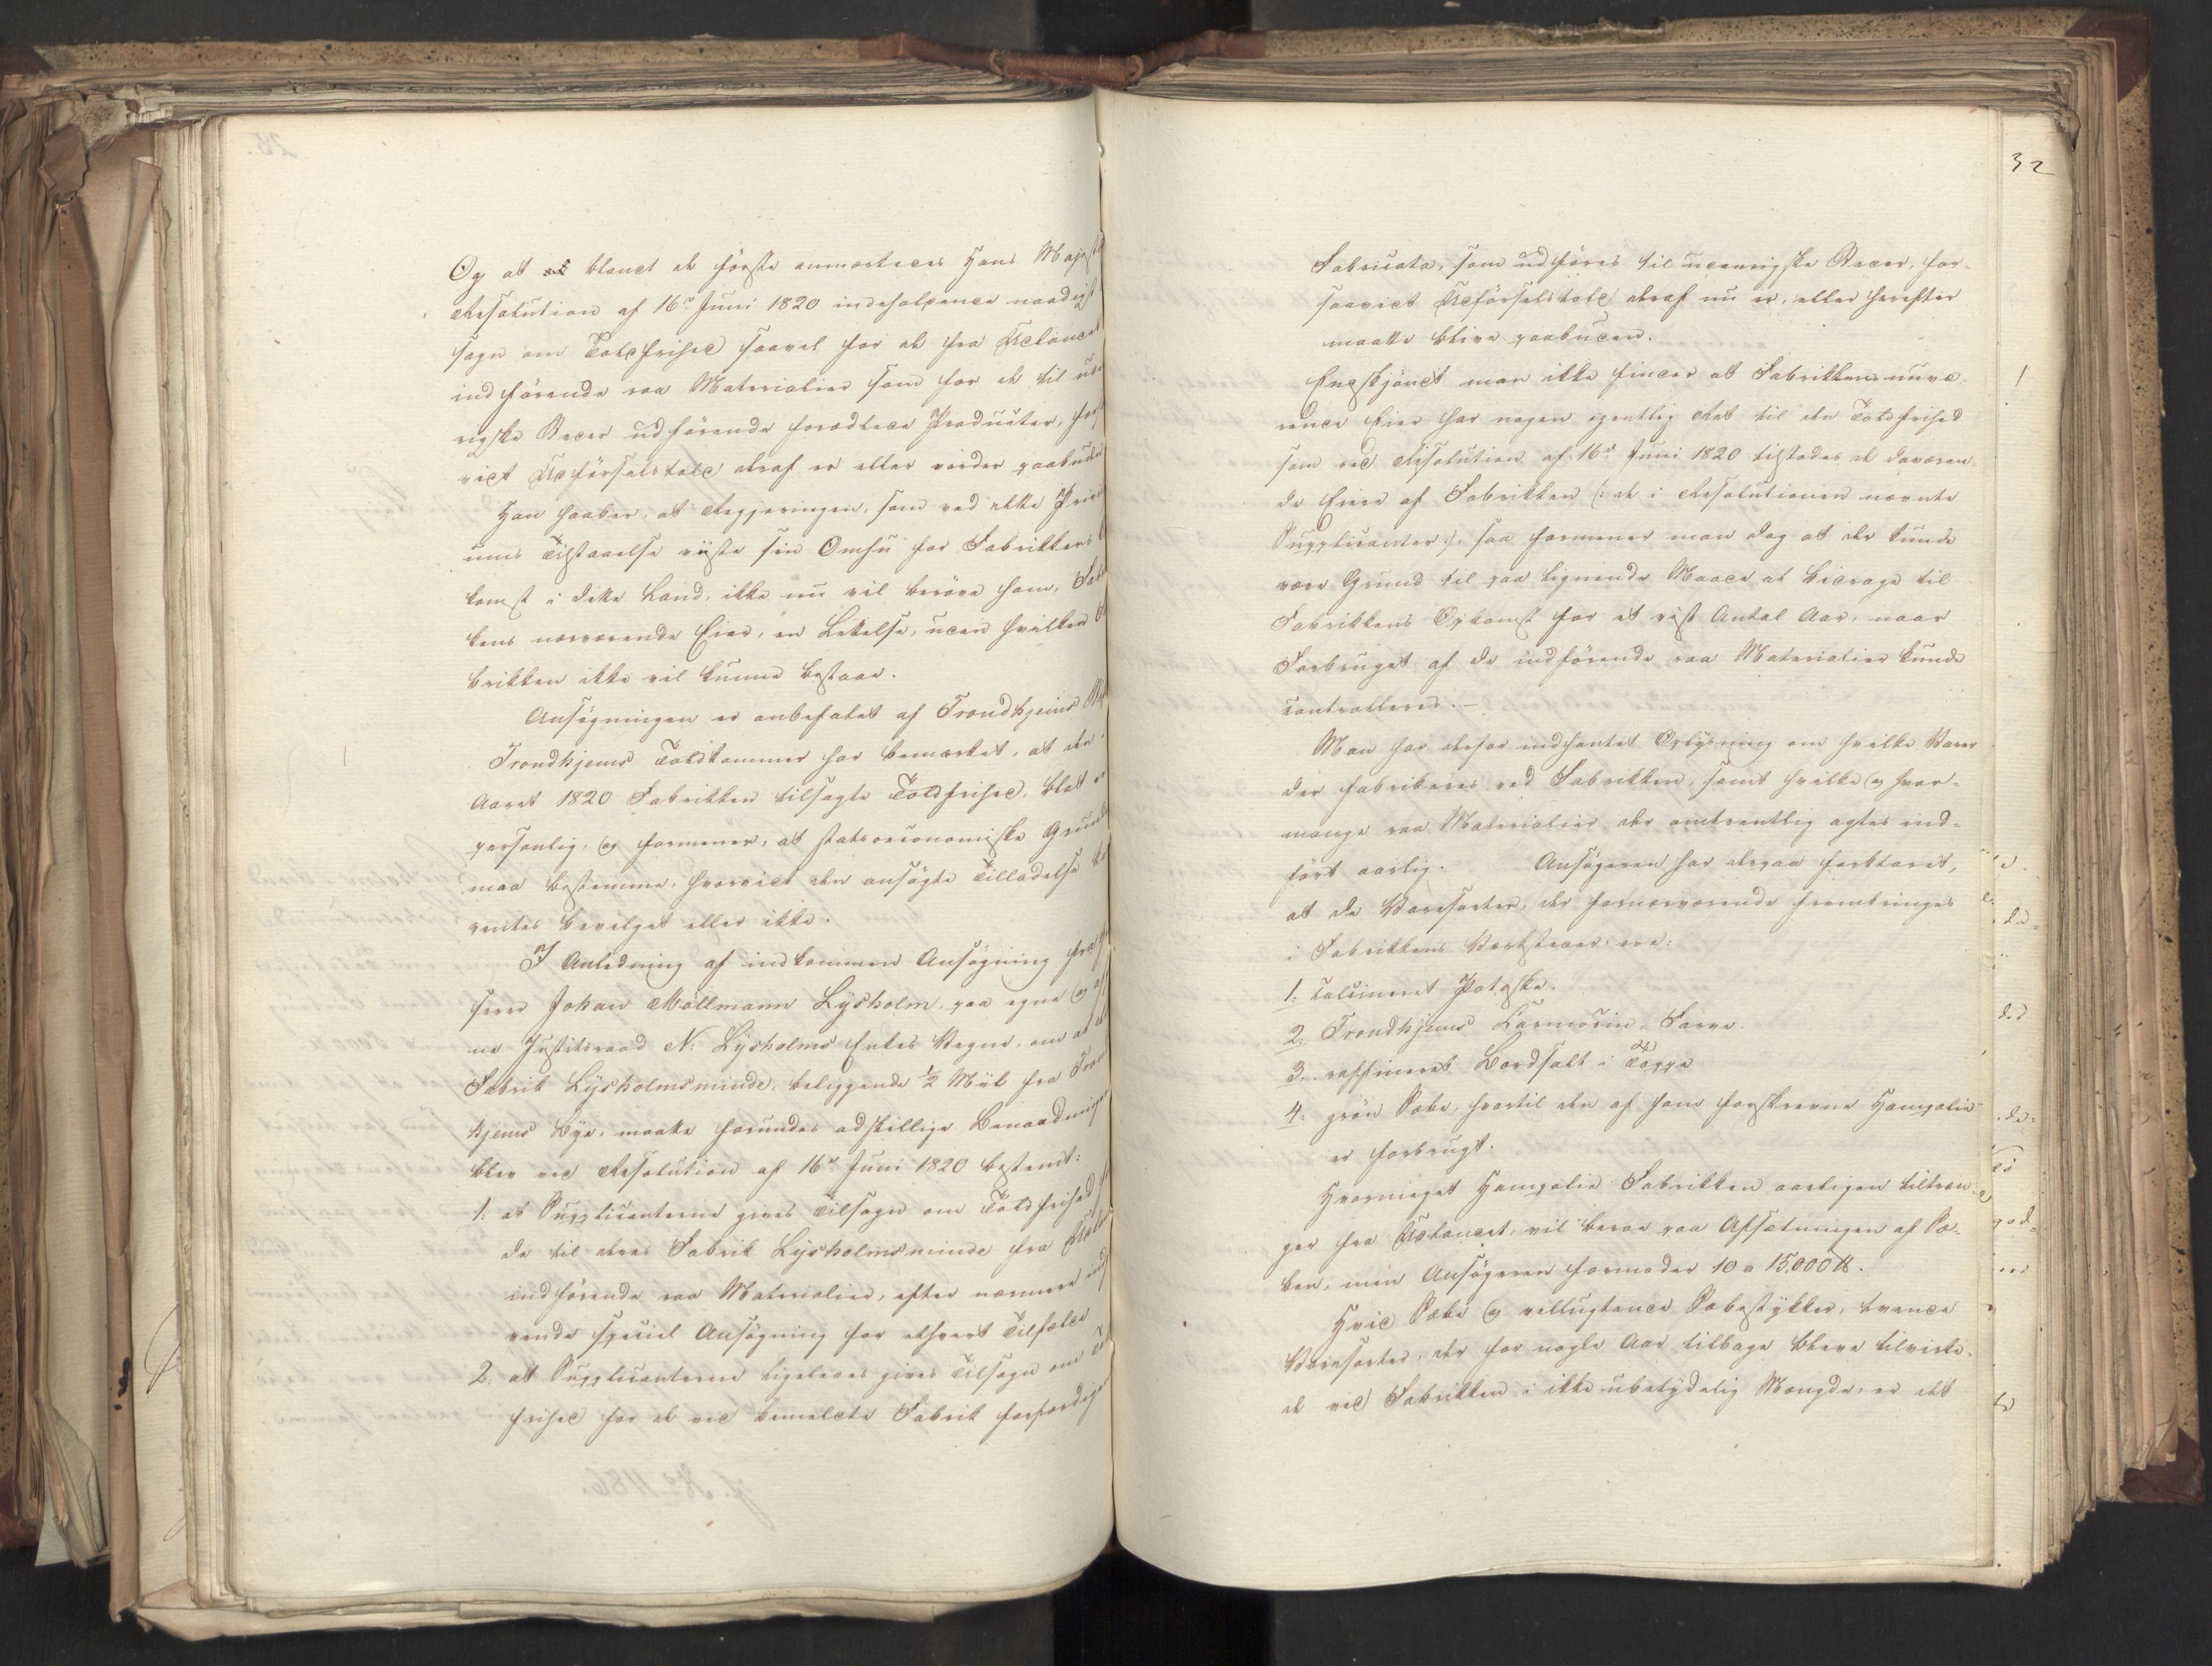 Og at blandt de første anmærkedes Hans Majest
Resolution af 16de Juni 1820 indeholdende naadigst
sagn om Toldfrihed saavel for de fra Udlandet
indførende raa Materialier som for de til uden
rigske Steder udførende forædlede Producter, for
vidt Udførselstold deraf er eller vorder paabuden
Han haaber, at Regjeringen, som ved dette
ums Tilstaaelse viiste sin Omhu for Fabrikkens
komst i dette Land, ikke nu vil berøve ham, Fabrik
kens nærværende Eier, en Lettelse, uden hvilken
brikken ikke vil kunne bestaae.
Ansøgningen er anbefalet af Trondhjems
Trondhjems Toldkammer har bemærket, at den
Aaret 1820 Fabrikken tilsagte Toldfrihed, blot
personlig, og formener, at statsoeconomiske Grunde
maa bestemme, hvorvidt den ansøgte Tilladelse
ventes bevilget eller ikke.
I Anledning af indkommen Ansøgning fra
serer Johan Møllmann Lysholm, paa egne og
ne Justitsraad N: Lysholms Enkes Vegne, om at
Fabrik Lysholmsminde, beliggende ½ Miil fra Tron
hjems Bye, maatte forundes adskillige Benaadninger
blev ved Resolution af 16de Juni 1820 bestemt:
1: at Supplicanterne gives Tilsagn om Toldfrihed
de til deres Fabrik Lysholmsminde fra Udlan
indførende raa Materialier, efter nærmere ind
vende speciel Ansøgning for ethvert Tilfælde
2. at Supplicanterne ligeledes gives Tilsagn om
frihed for de ved bemeldte Fabrik forfærdigede
32
Fabricata, som udføres til udenrigske Steder, for-
saavidt Udførselstold deraf nu er, eller herefter
maatte blive paabuden.
Endskjøndt man ikke finder at Fabrikkens nuvæ-
rende Eier har nogen egentlig Ret til den Toldfrihed
som ved Resolution af 16de Juni 1820 tilstodes de daværen-
de Eiere af Fabrikken (: de i Resolutionen nævnte
Supplicanter:), saa formener man dog at der kunde
være Grund til paa lignende Maade at bidrage til
Fabrikkens Opkomst for et vist Antal Aar, naar
Forbruget af de indførende raa Materialier kunde
controlleres.—
Man har derfor indhentet Oplysning om hvilke Varer
der fabrikeres ved Fabrikken, samt hvilke og hvor-
mange raa Materialier der omtrentlig agtes ind-
ført aarlig. Ansøgeren har derpaa forklaret,
at de Varesorter, der fornærværende frembringes
i Fabrikkens Værksteder, ere:
1: Calcineret Potaske.
2: Trondhjems Carmosin-Farve.
3. raffineret Bordsalt i Toppe
4: grøn Sæbe, hvortil den af ham forskrevne Hampolie
er forbrugt.
Hvormeget Hampolie Fabrikken aarligen tiltræn-
ger fra Udlandet, vil beroe paa Afsætningen af Sæ-
ben, men Ansøgeren formoder 10 a 15,000 ℔.
Hvid Sæbe og vellugtende Sæbestykker, tvende
Varesorter, der for nogle Aar tilbage bleve tilvirke-
de ved Fabrikken i ikke ubetydelig Mængde, er det